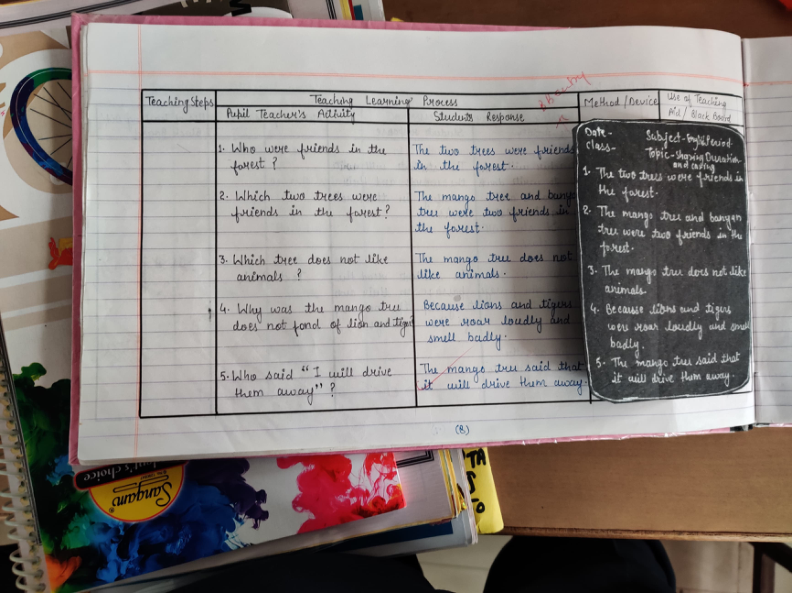 Teaching Learning Process
Teaching Steps
Pupil Teacher's Activity
Students Response
Method / Device
Use of Teaching
Aid / Black Board
1. Who were friends in the
forest ?
The two trees were friends
in the forest.
2. Which two trees were
friends in the forest?
The mango tree and banyan
tree were two friends in
the forest.
3. Which tree does not like
animals ?
The mango tree does not
like animals.
4. Why was the mango tree
does not fond of lion and tiger?
Because lions and tigers
were roar loudly and
smell badly.
5. Who said "I will drive
them away" ?
The mango tree said that
it will drive them away.
Date-
Subject-English Period-
Class-
Topic-
and caring
1. The two trees were friends in
the forest.
2. The mango tree and banyan
tree were two friends in the
forest.
3. The mango tree does not like
animals.
4. Because lions and tigers
were roar loudly and smell
badly.
5. The mango tree said that
it will drive them away.
(8)
Sangam
's choice